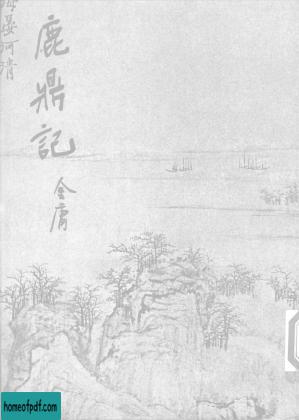 海晏河清
鹿鼎記
金庸
homeofpdf.com